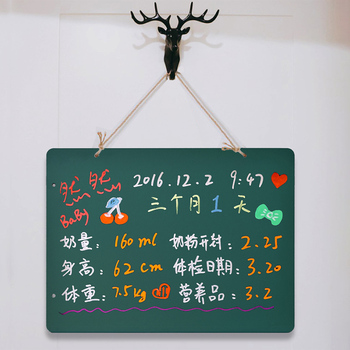 然然 2016.12.2 9:47
Baby 三个月1天
奶量: 160ml 奶粉开封: 2.25
身高: 62cm 体检日期: 3.20
体重: 7.5kg 营养品: 3.2